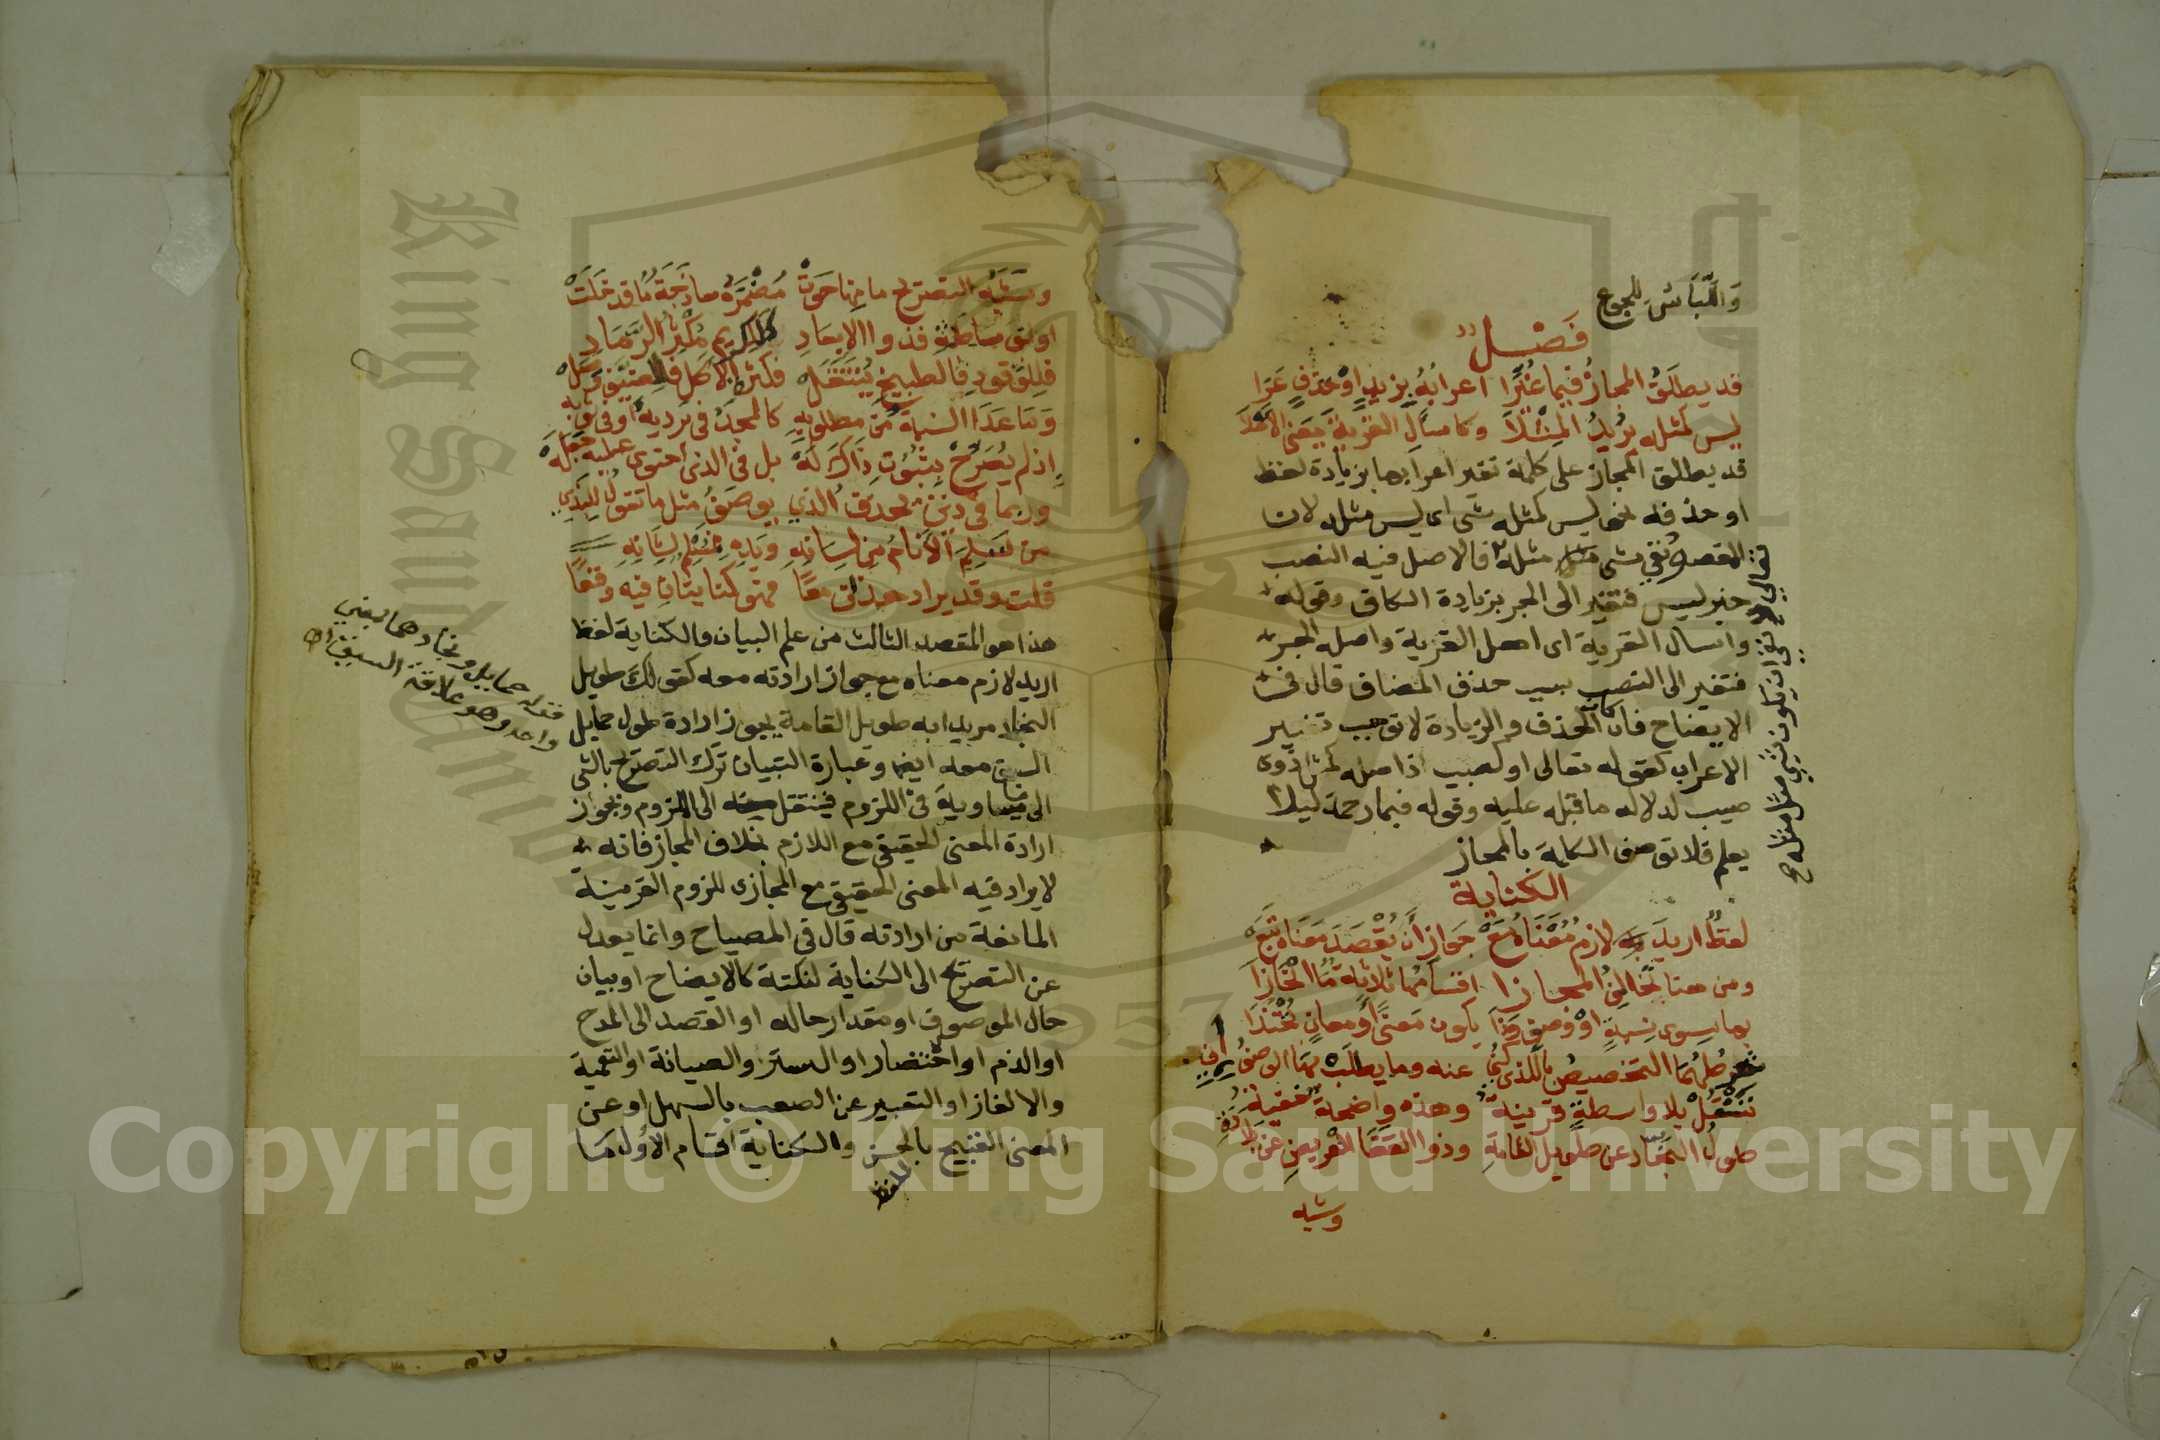 وَاللّبَاسَ للجوع
فَصْل
قد يطلَقُ المجازُ فيما غُيِّرَا اعرابُهُ بزيدٍ اوْ حذفٍ عَرَا
ليس كمثله يزيدُ المِثْلَا وكاسأل القريةَ يَعْنِى الأهْلَا
قد يطلق المجاز على كلمة تغير اعرابها بزيادة لفظ
او حذفه نحو ليس كمثله شى اى ليس مثله لان
المقصود نفى شى مثله فالاصل فيه النصب
خبر ليس فتغير الى الجر بزيادة الكاف وقوله
واسال القرية اى اهل القرية واصله الجر
فتغير الى النصب بسبب حذف المضاف قال فى
الايضاح فان كان الحذف والزيادة لا توجب تغيير
الاعراب كقوله تعالى اوكصيب اذ اصله كمثل ذوى
صيب لدلاله ما قبله عليه وقوله فبما رحمة ليلا
يعلم فلا توصف الكلمة بالمجاز
الكناية
لفظٌ اريدَ به لازم مَعْنَاهُ مَعْ جَوازِ أَنْ يُقْصَدَ مَعنَاهُ تَبَعْ
ومن هنا تخالفُ المجازا اقسامُها ثلاثة
بها سِوى نِسبةٍ اوْ وَصفٍ وَذَا يكون مَعنًى أو معانٍ
شرطُهُمَا التخصيصُ بالذى كُنِى عنه وما يطلَبْ بهَا الوصفُ
تَنتَقِلْ بلا واسطةٍ قرينة وهذه واضحة خفية
طولُ النجَادِ عن طويل القامةِ وذو القفَا العَريضِ عن بَلَادَةِ
وشبه
نفى ان يكون شى مثل مثله ح
وشبه التصريح ما منها حَوَتْ مُضْمَرَةٌ ساذَجَةٌ مَا قد خَلَتْ
او بتوسّاطة فذو الابعَادِ كالكريم مُكْثِر الرَّمَادِ
فللوقودِ فالطبيخ يُنْتَقَلْ فكثرة الأكل فلِلضيف
وَمَا عَدَا النسبةُ مَن مطلوبِهِ كالمجدُ فى بُرديه او فى ثوبه
اذ لم يُصَرِّحْ بِثبُوتِ ذَاكَ لَهُ بل فى الذى احتوى عليه جَعَلَهْ
وربما فى ذين يحذفُ الذي يوصَفُ مثل ما تقولُ للبَذِي
من سَلِمَ الأنامُ مِن لِسَانِهِ ويَدِهِ مُسْلِمٌ لِشَانِهِ
قلت وقد يراد هذانِ معًا فهو كنايتانِ فيه وقعَا
هذا هو المقصد الثالث من علم البيان والكناية لفظ
اريد لازم معناه مع جواز ارادته معه كقولك طويل
النجاد مريدا به طويل القامة يجوز ارادة طول حمايل
السيف معه ايضا وعبارة التبيان ترك التصريح بالشى
الى مساويه فى اللزوم فينتقل منه الى الملزوم ونجواز
ارادة المعنى الحقيقى مع اللازم بخلاف المجاز فانه
لا يراد فيه المعنى الحقيقى مع المجازى للزوم القرينة
المانعة من ارادته قال فى المصباح وانما يعدل
عن التصريح الى الكناية لنكتة كالايضاح او بيان
حال الموصوف او مقدار حاله او القصد الى المدح
او الذم او اختصار او الستر والصيانة او التعمية
والالغاز او التعبير عن الصعب بالسهل او عن
المعنى القبيح باللفظ الحسن والكناية اقسام الاول ما
قوله حمايل ونجاد هما بمعنى
واحد وهو علاقة السيف